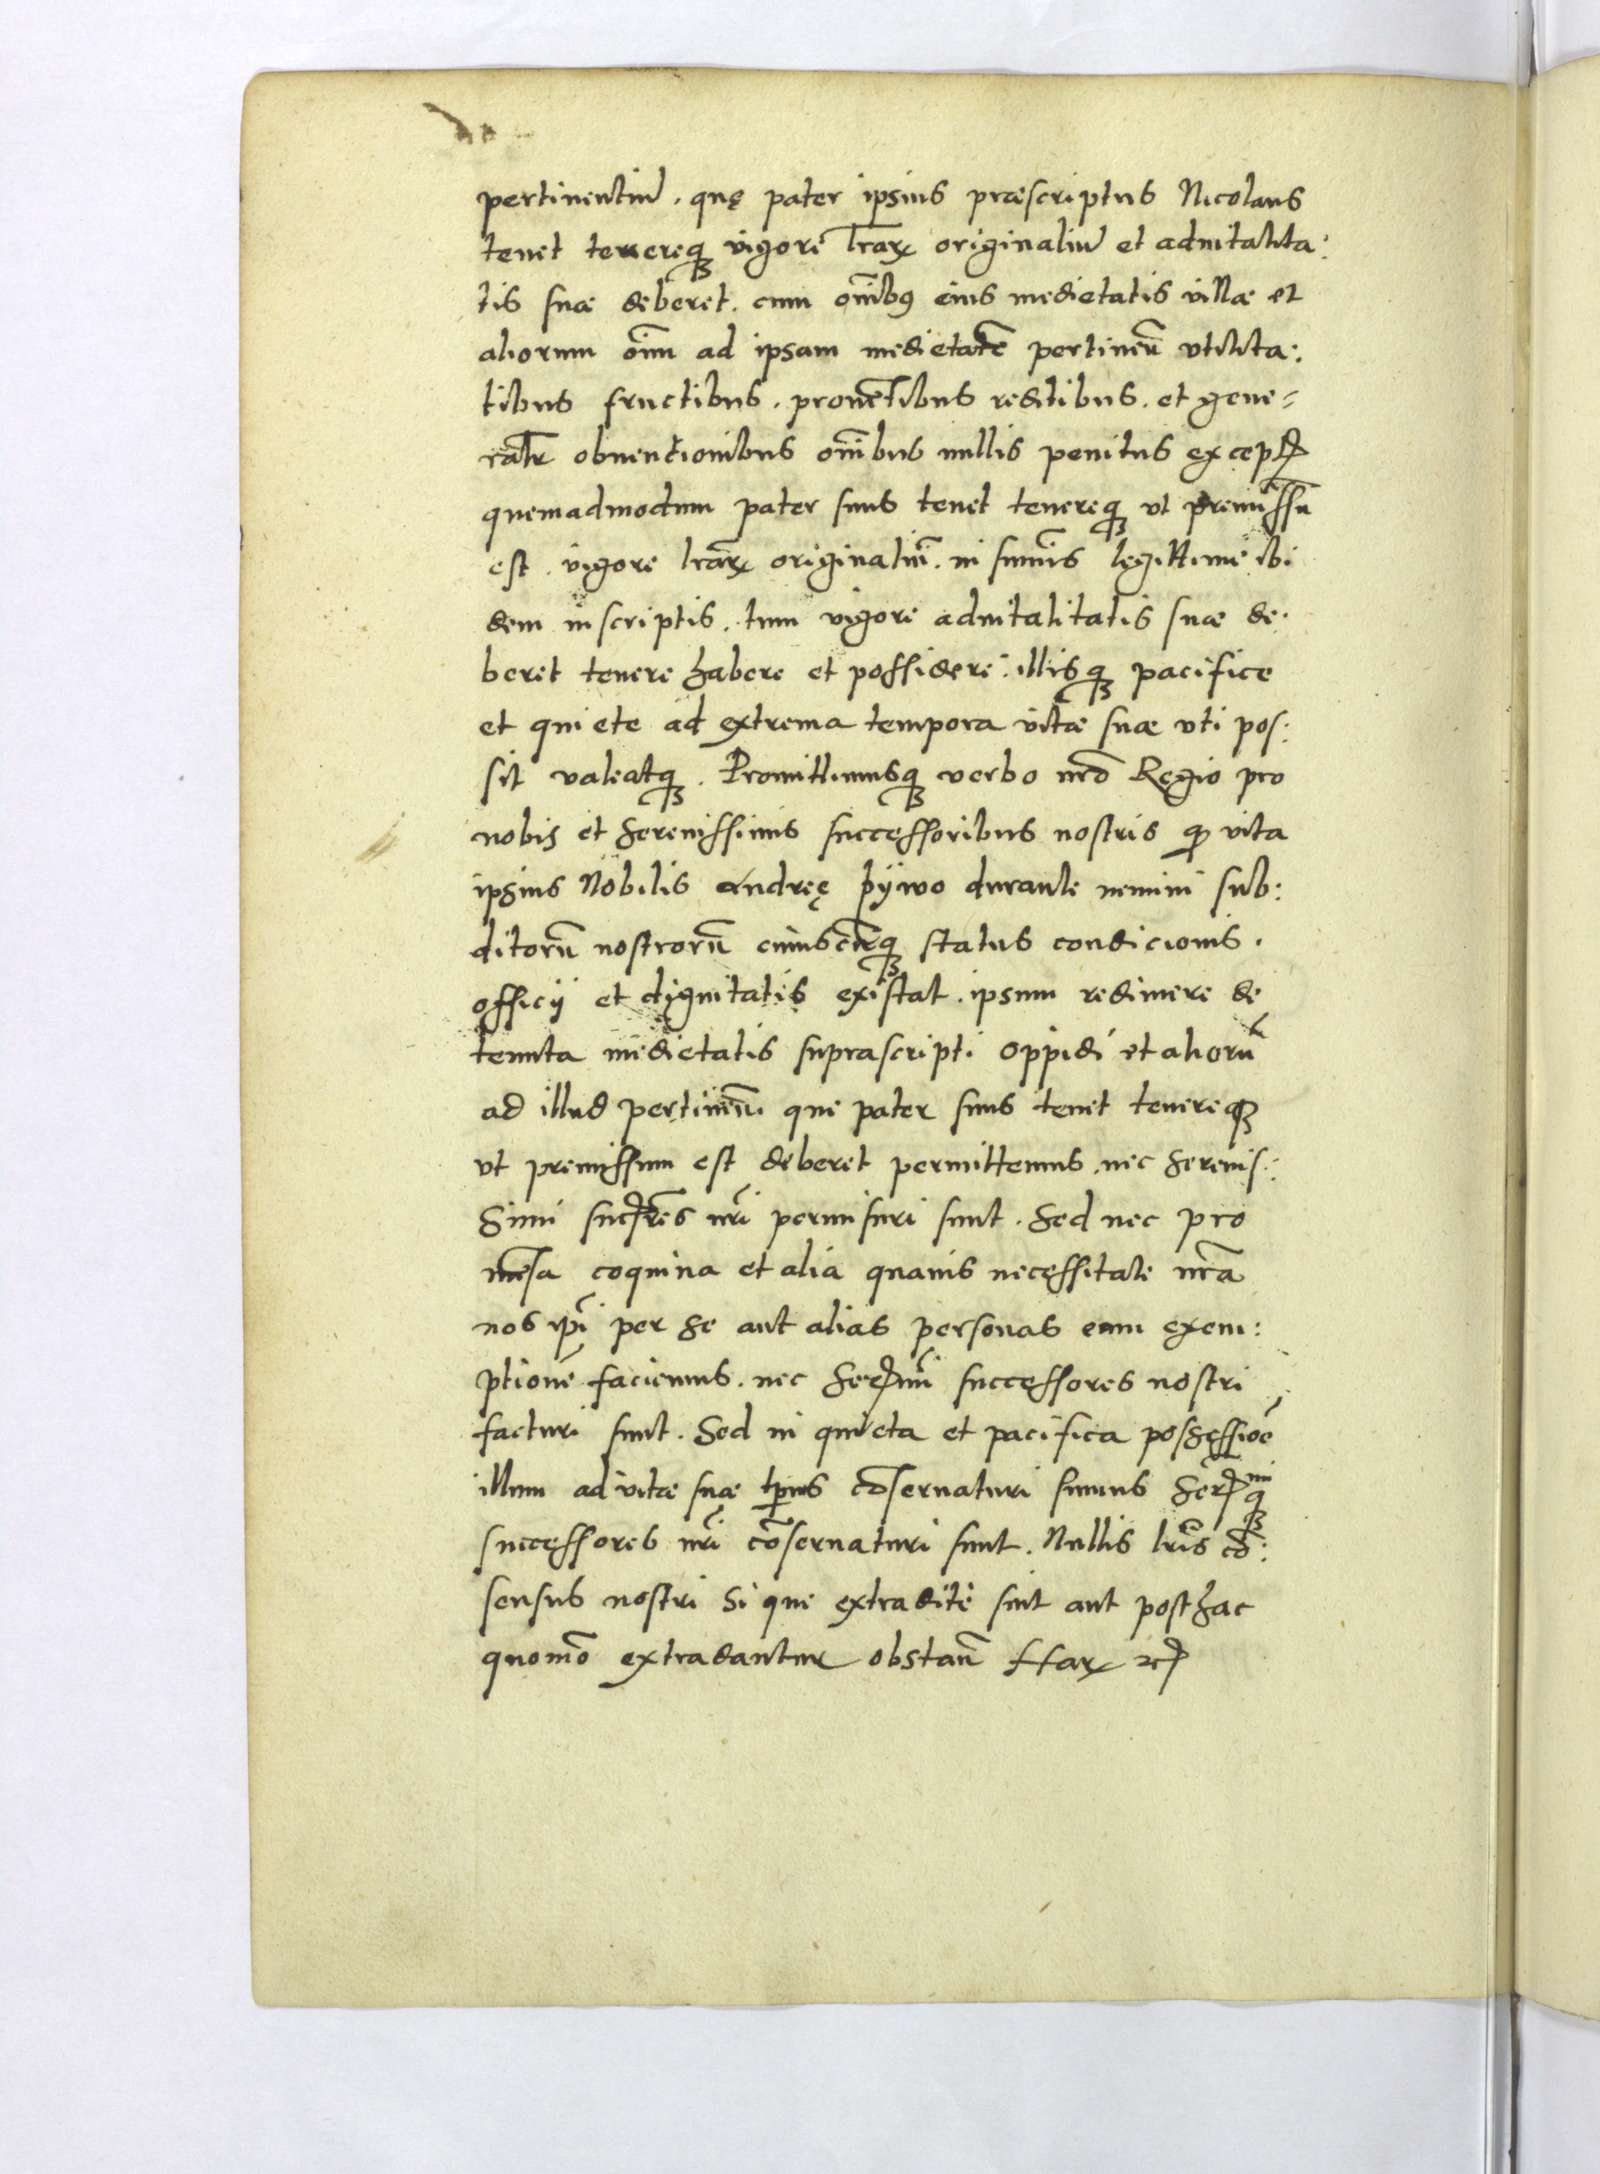 pertinentiũ. quę pater ipsius præscriptus Nicolaus
tenet tenereq́ꝫ vigore lr̃arꝝ originaliũ et aduitalita:
tis suæ deberet. cum om̃ibꝰ eius medietatis villæ et
aliorum oĩm ad ipsam medietatẽ pertineñ vtilita:
tibus fructibus. prouẽtibus reditibus. et gene=
ralr̃ obuentionibus om̃ibus nullis penitus excepꝭ
quemadmodum pater suus tenet tenereqꝫ vt premissũ
est. vigore lr̃arꝝ originaliũ. in sum̃is legittime ibi
dem inscriptis. tum vigore aduitalitatis suæ de:
beret tenere habere et possidere: illisqꝫ pacifice
et quiete ad extrema tempora vitæ suæ vti pos:
sit valeatqꝫ. Promittimusqꝫ verbo nr̃o Regio pro
nobis et serenissimis successoribus nostris qꝫ vita
ipsius Nobilis Andreę pÿwo durante nemini sub:
ditorũ nostrorũ cuiuscũqꝫ status condicionis.
officij et dignitatis existat. ipsum redimere de
tenuta medietatis suprascripti oppidi et aliorũ
ad illud pertineñ. que pater suus tenet tenereqꝫ
vt premissum est deberet permittemus. nec serenis:
Simi succr̃es nr̃i permissuri sunt. Sed nec pro
mẽsa coquina et alia quauis necessitate nr̃a
nos ip̃i per se aut alias personas eam exem:
ptionẽ faciemus. nec Serꝭmi successores nostri
facturi sunt. Sed in quieta et pacifica possessiõe
illum ad vitæ suæ tp̃us cõseruaturi sumus Serꝭmiqꝫ
successores nr̃i cõseruaturi sunt. Nullis lr̃is cõ:
sensus nostri Si que extradite sint aut posthac
quomõ extradantur obstañ Harꝝ ꝛcꝭ